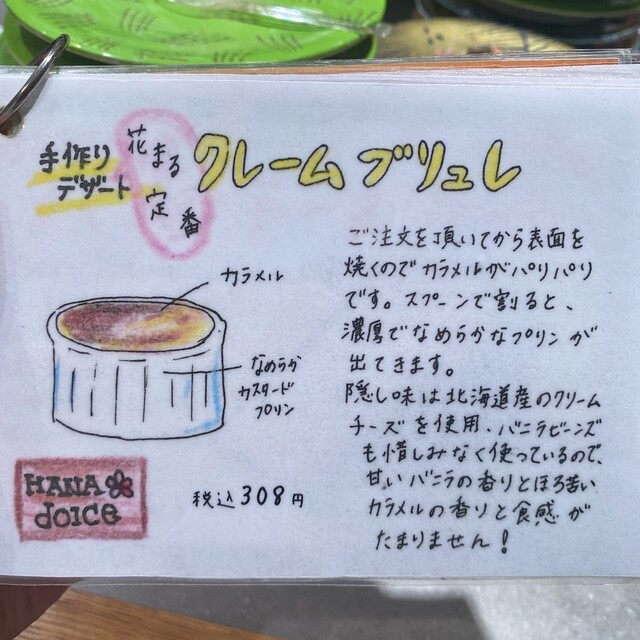 手作り
デザート
花まる
定番
クレームブリュレ
カラメル
なめらか
カスタード
プリン
HANA
dolce
税込308円
ご注文を頂いてから表面を
焼くのでカラメルがパリパリ
です。スプーンで割ると、
濃厚でなめらかなプリンが
出てきます。
隠し味は北海道産のクリーム
チーズを使用、バニラビーンズ
も惜しみなく使っているので、
甘いバニラの香りとほろ苦い
カラメルの香りと食感が
たまりません!